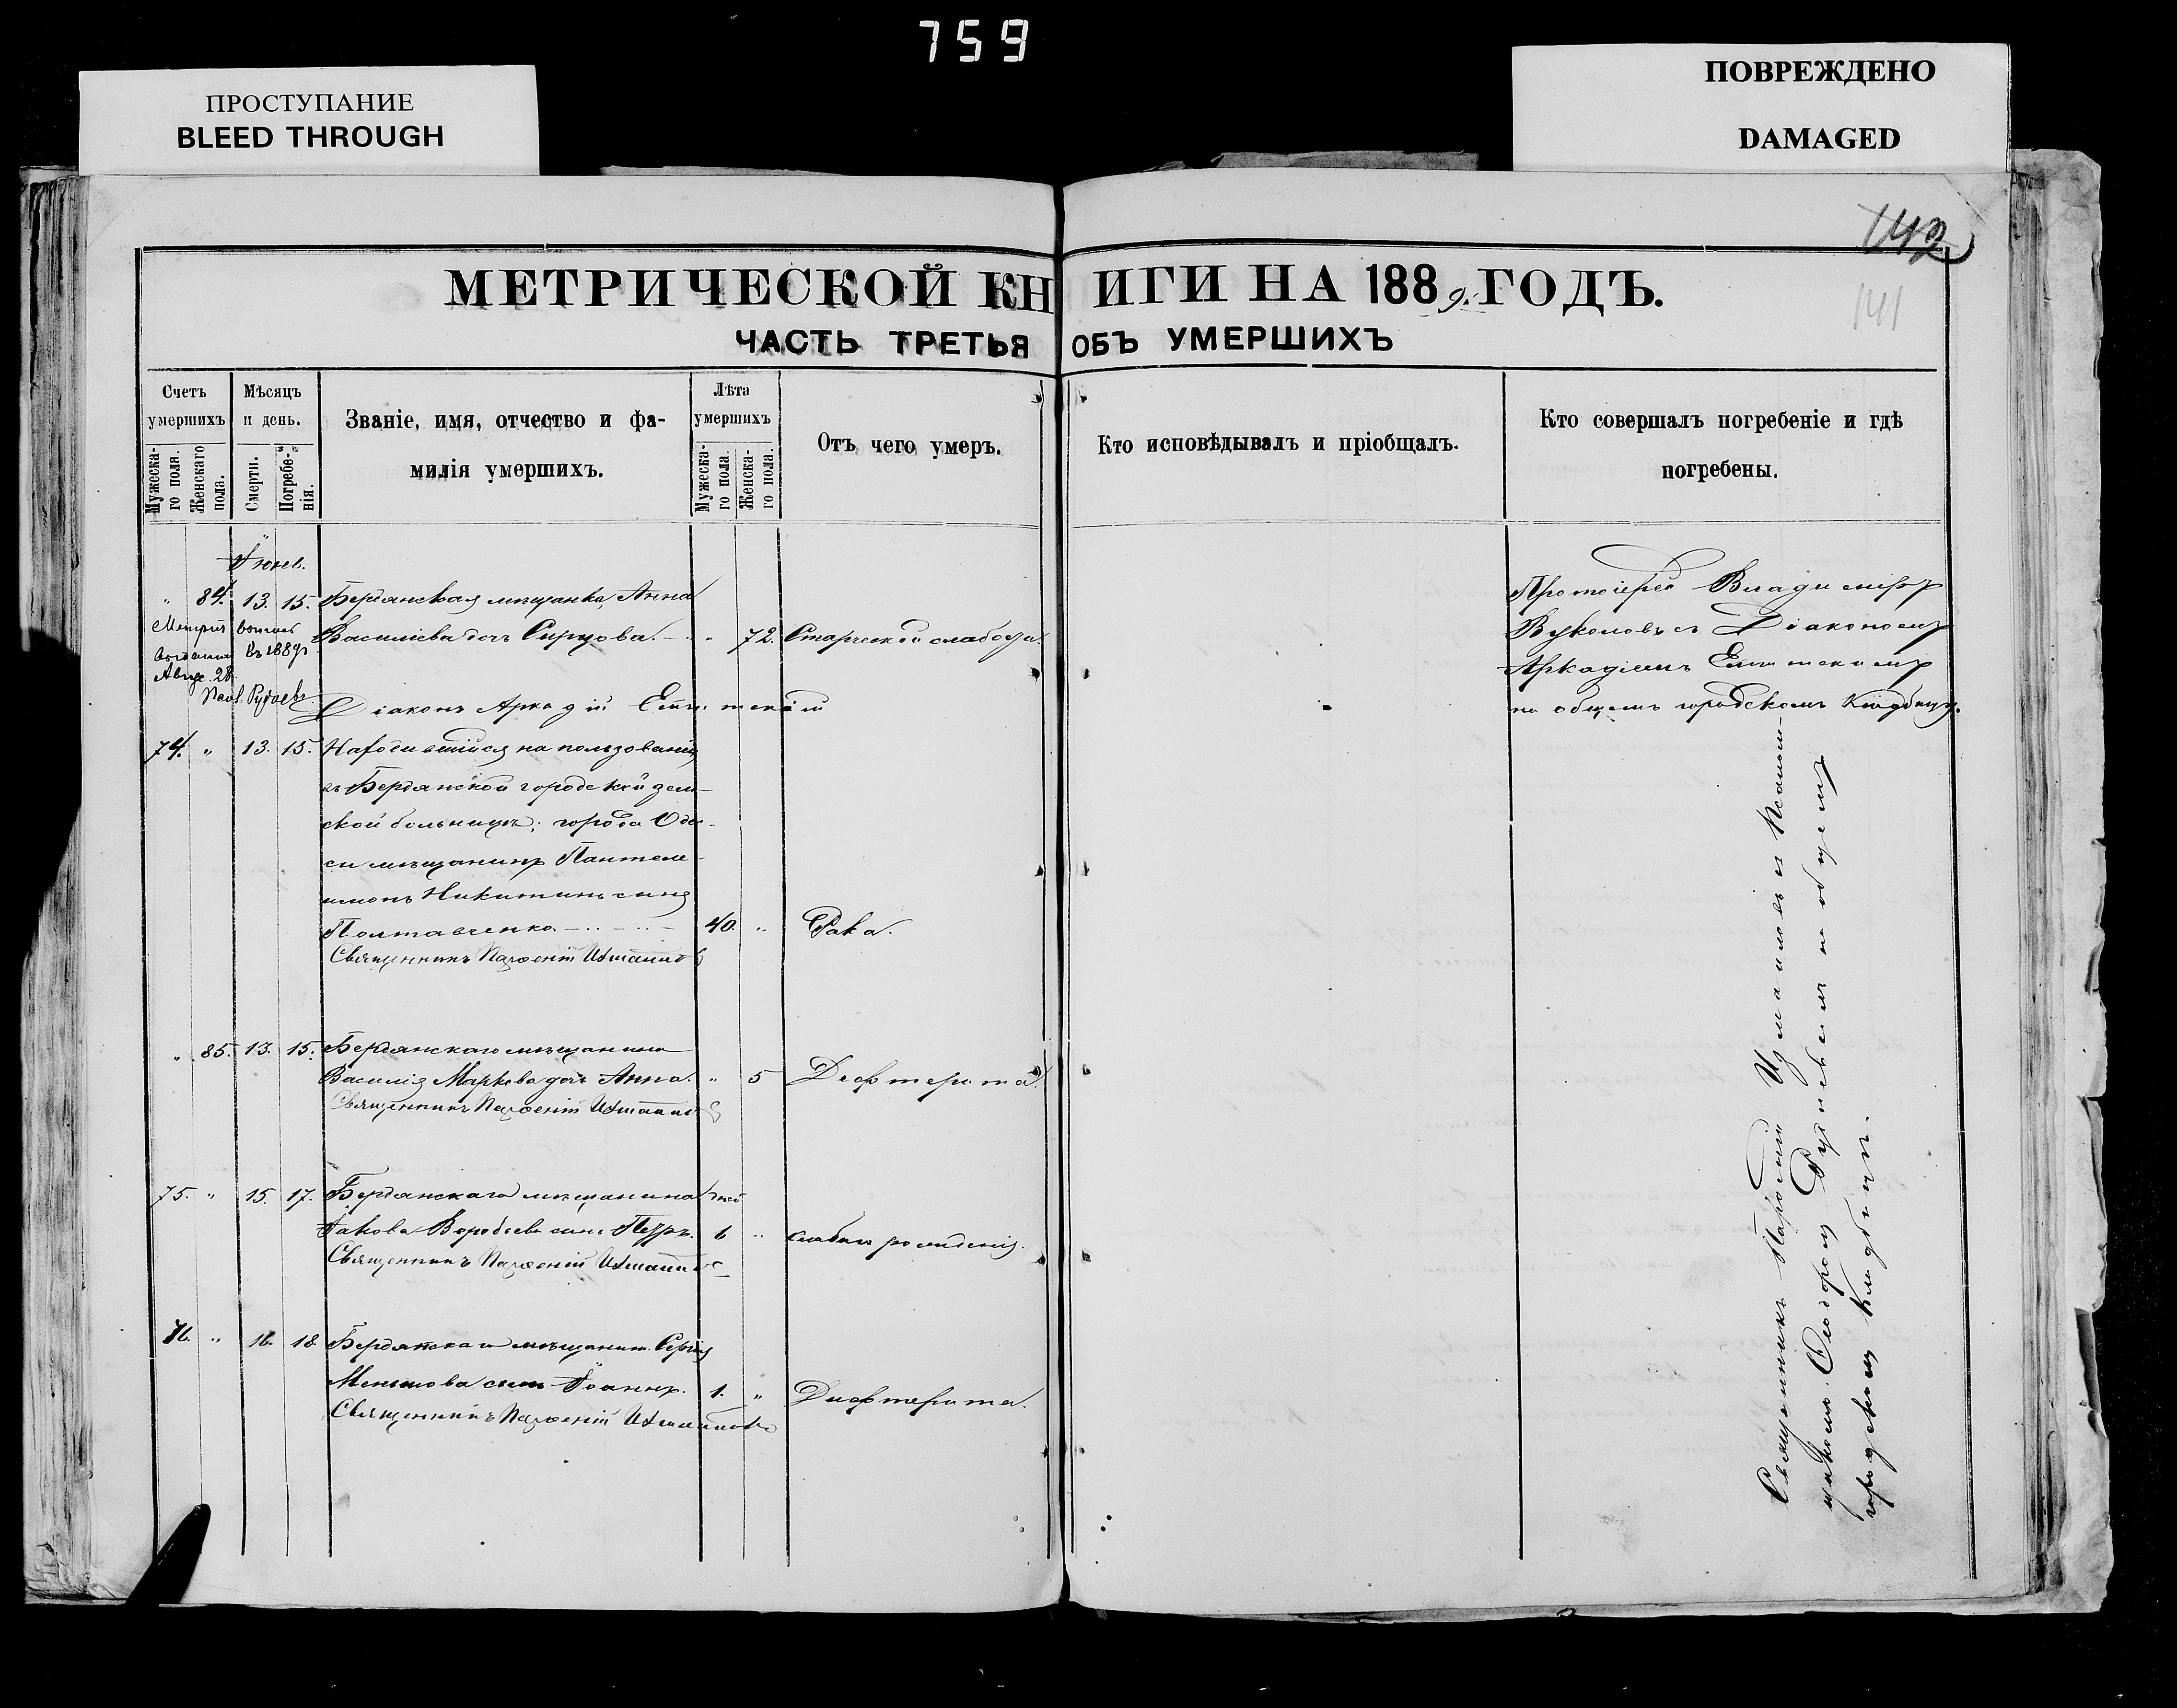 759
ПРОСТУПАНИЕ
BLEED THROUGH
ПОВРЕЖДЕНО
DAMAGED
142
141
МЕТРИЧЕСКОЙ КНИГИ НА 1889 ГОДЪ.
ЧАСТЬ ТРЕТЬЯ ОБЪ УМЕРШИХЪ
Счетъ умершихъ
Мужеска-
го пола.
Женскаго
пола.
Мѣсяцъ
и день.
Смерти.
Погребе-
нія.
Званіе, имя, отчество и фа-
милія умершихъ.
Лѣта
умершихъ
Мужеска-
го пола.
Женска-
го пола.
Отъ чего умеръ.
Кто исповѣдывалъ и пріобщалъ.
Кто совершалъ погребеніе и гдѣ
погребены.
" 84. 13. 15. Бердянская мѣщанка, Анна
Василіева дочь " 72. Старческой слабости.
въ 1889г
Авгус. 28.
Діаконъ Аркадій
Протоіерей Владиміръ
Вуколовъ съ Діакономъ
Аркадіемъ
на общемъ городскомъ кладбищѣ.
74. " 13. 15. Находившійся на пользованіи
въ Бердянской городской зем-
ской больницѣ, города Оде-
сы мѣщанинъ Пантеле-
имонъ Никитинъ сынъ
Полтавченко. 40. " Рака.
Священникъ Парѳеній
" 85. 13. 15. Бердянскаго мѣщанина
Василія Маркова дочь Анна. " 5 Дифтерита.
Священникъ Парѳеній
75. " 15. 17. Бердянскаго мѣщанина дней
Іакова Воробьева сынъ Петръ. 6 " слабаго рожденія.
Священникъ Парѳеній
76. " 16. 18. Бердянскаго мѣщанина Сергія
Меньшова сынъ Іоаннъ. 1. " Дифтерита.
Священникъ Парѳеній
Священникъ Парѳеній Измаиловъ съ Псалом-
щикомъ Ѳеодоромъ Рудневымъ на общемъ
городскомъ кладбищѣ.